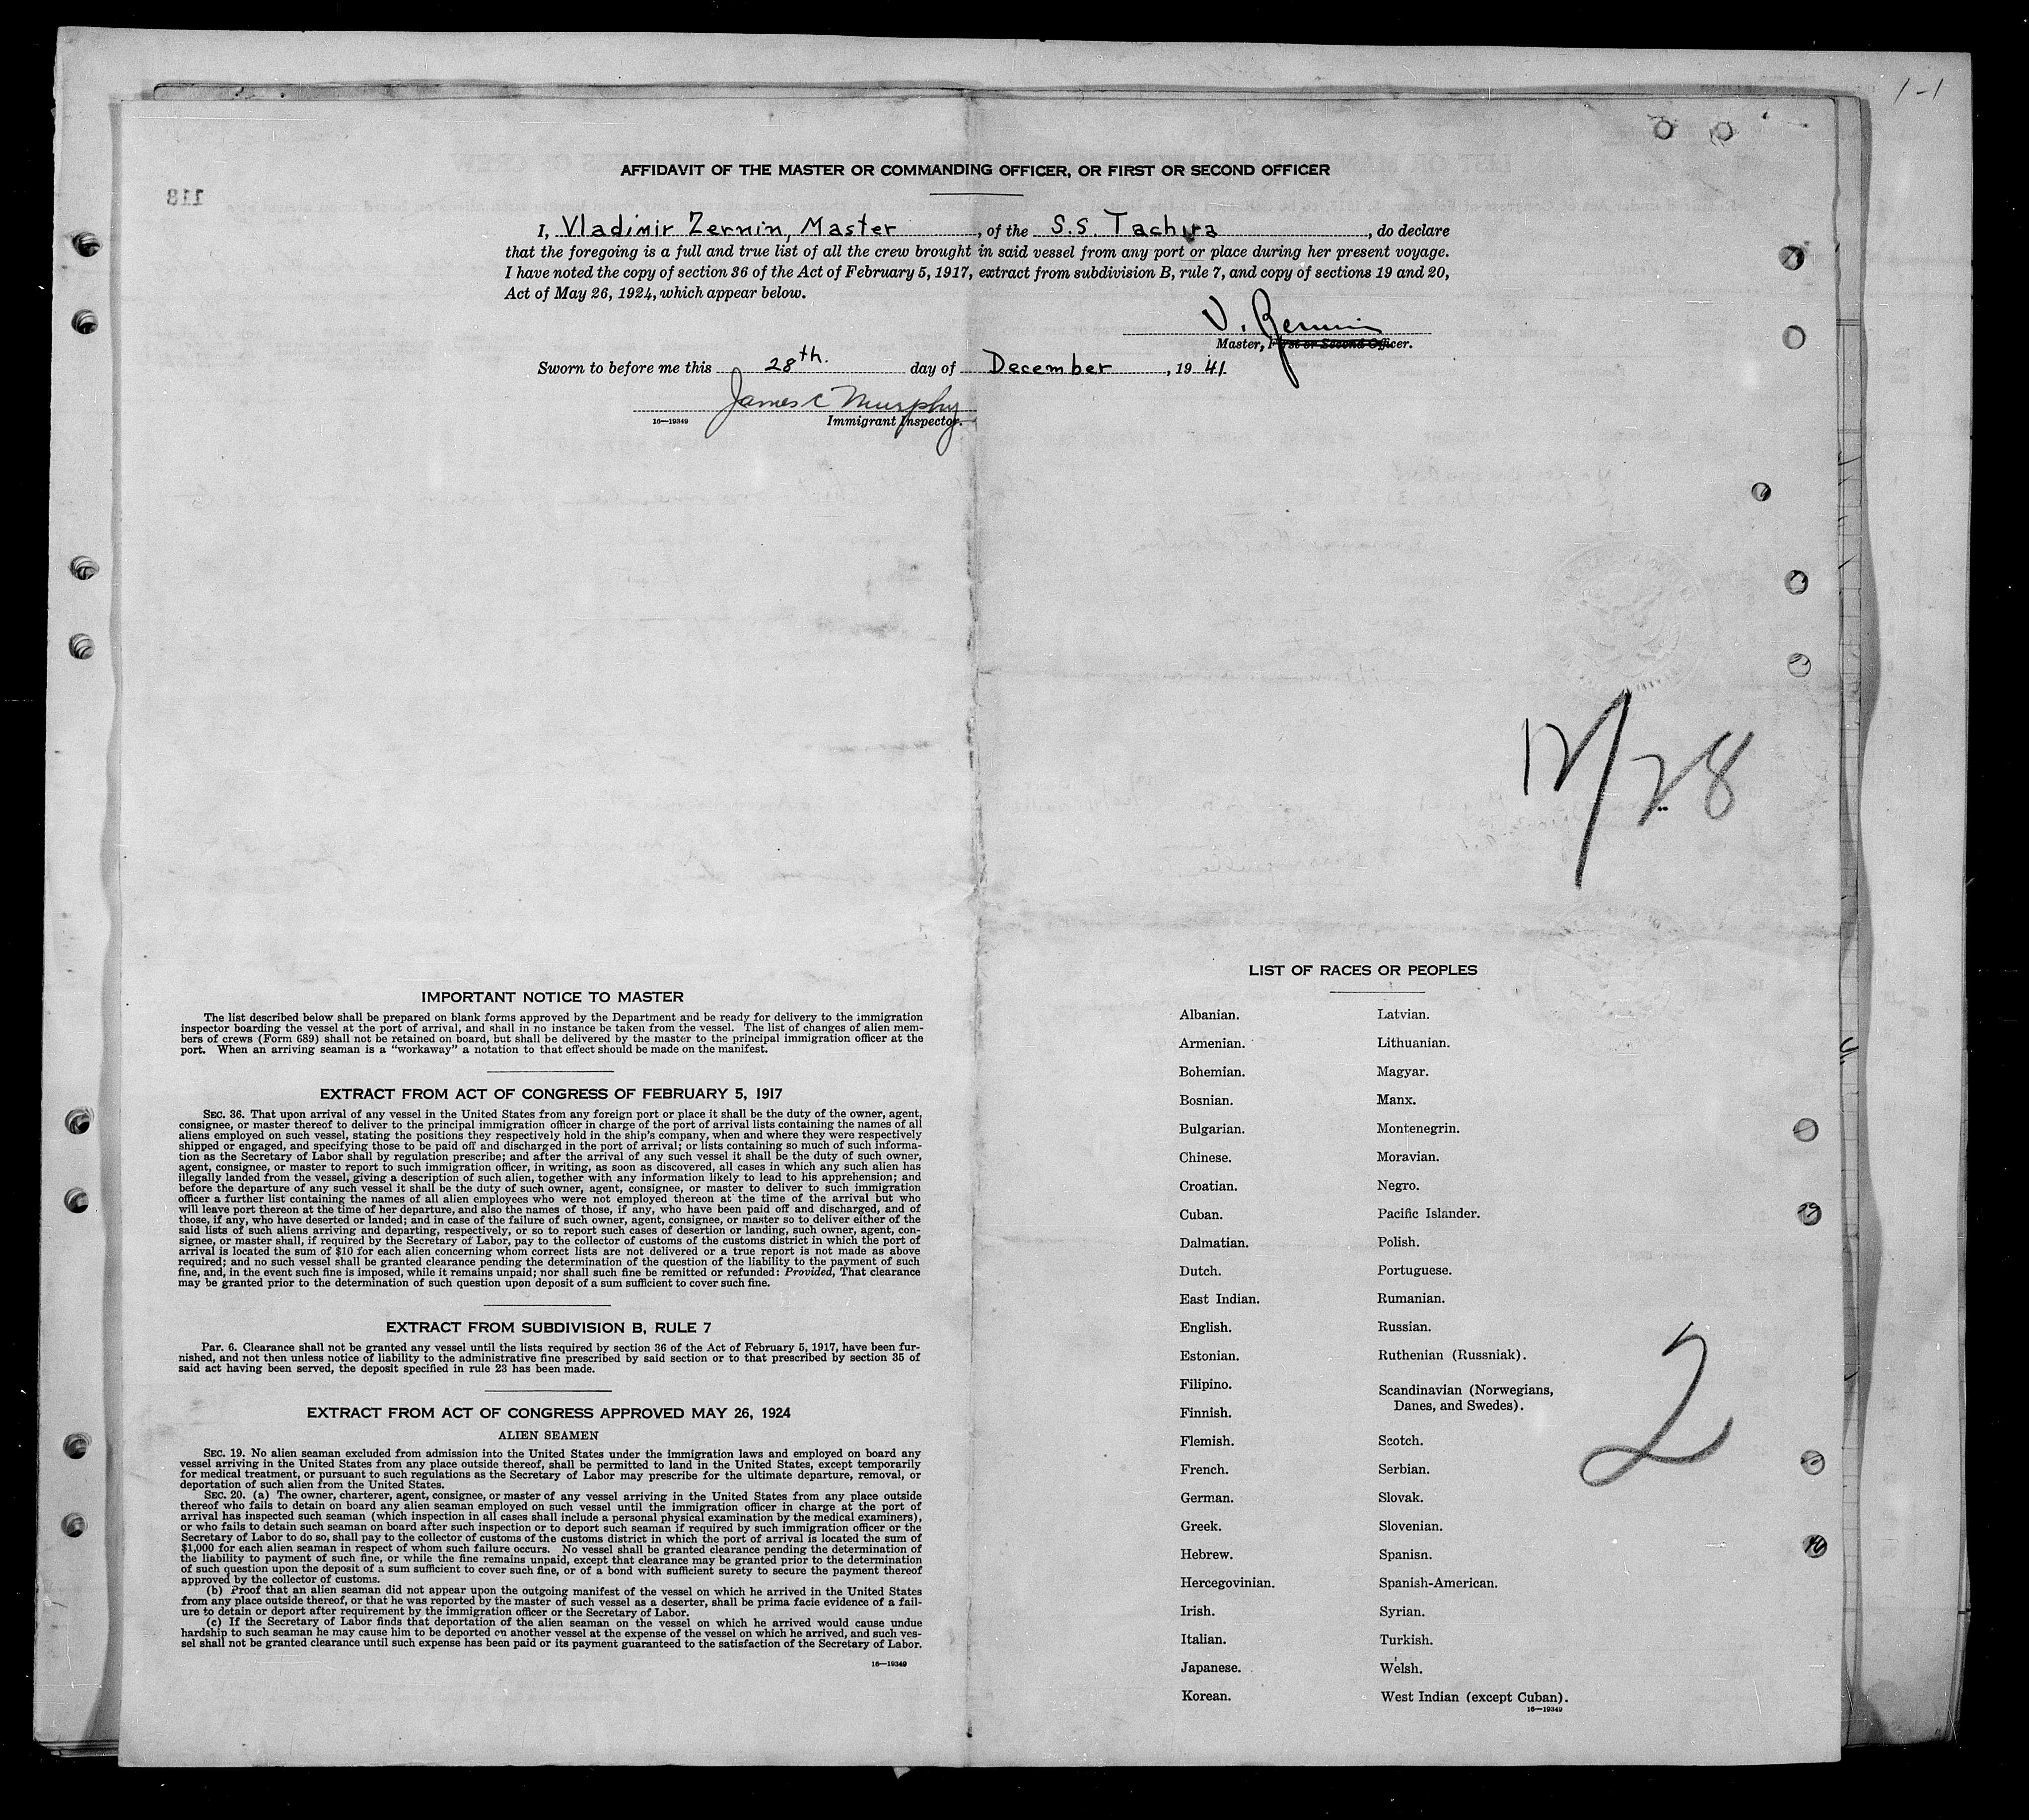 1-1
AFFIDAVIT OF THE MASTER OR COMMANDING OFFICER, OR FIRST OR SECOND OFFICER
118
I, Vladimir Zernin, Master, of the S.S. Tachira, do declare
that the foregoing is a full and true list of all the crew brought in said vessel from any port or place during her present voyage.
I have noted the copy of section 36 of the Act of February 5, 1917, extract from subdivision B, rule 7, and copy of sections 19 and 20,
Act of May 26, 1924, which appear below.
V. Zernin
Master, First or Second Officer.
Sworn to before me this 28th. day of December, 1941
James C Murphy
16—19349 Immigrant Inspector.
12/28
IMPORTANT NOTICE TO MASTER
The list described below shall be prepared on blank forms approved by the Department and be ready for delivery to the immigration
inspector boarding the vessel at the port of arrival, and shall in no instance be taken from the vessel. The list of changes of alien mem-
bers of crews (Form 689) shall not be retained on board, but shall be delivered by the master to the principal immigration officer at the
port. When an arriving seaman is a "workaway" a notation to that effect should be made on the manifest.
EXTRACT FROM ACT OF CONGRESS OF FEBRUARY 5, 1917
SEC. 36. That upon arrival of any vessel in the United States from any foreign port or place it shall be the duty of the owner, agent,
consignee, or master thereof to deliver to the principal immigration officer in charge of the port of arrival lists containing the names of all
aliens employed on such vessel, stating the positions they respectively hold in the ship's company, when and where they were respectively
shipped or engaged, and specifying those to be paid off and discharged in the port of arrival; or lists containing so much of such informa-
tion as the Secretary of Labor shall by regulation prescribe; and after the arrival of any such vessel it shall be the duty of such owner,
agent, consignee, or master to report to such immigration officer, in writing, as soon as discovered, all cases in which any such alien has
illegally landed from the vessel, giving a description of such alien, together with any information likely to lead to his apprehension; and
before the departure of any such vessel it shall be the duty of such owner, agent, consignee, or master to deliver to such immigration
officer a further list containing the names of all alien employees who were not employed thereon at the time of the arrival but who
will leave port thereon at the time of her departure, and also the names of those, if any, who have been paid off and discharged, and of
those, if any, who have deserted or landed; and in case of the failure of such owner, agent, consignee, or master so to deliver either of the
said lists of such aliens arriving and departing, respectively, or so to report such cases of desertion or landing, such owner, agent, con-
signee, or master shall, if required by the Secretary of Labor, pay to the collector of customs of the customs district in which the port of
arrival is located the sum of $10 for each alien concerning whom correct lists are not delivered or a true report is not made as above
required; and no such vessel shall be granted clearance pending the determination of the question of the liability to the payment of such
fine, and, in the event such fine is imposed, while it remains unpaid; nor shall such fine be remitted or refunded: Provided, That clearance
may be granted prior to the determination of such question upon deposit of a sum sufficient to cover such fine.
EXTRACT FROM SUBDIVISION B, RULE 7
Par. 6. Clearance shall not be granted any vessel until the lists required by section 36 of the Act of February 5, 1917, have been fur-
nished, and not then unless notice of liability to the administrative fine prescribed by said section or to that prescribed by section 35 of
said act having been served, the deposit specified in rule 23 has been made.
EXTRACT FROM ACT OF CONGRESS APPROVED MAY 26, 1924
ALIEN SEAMEN
SEC. 19. No alien seaman excluded from admission into the United States under the immigration laws and employed on board any
vessel arriving in the United States from any place outside thereof, shall be permitted to land in the United States, except temporarily
for medical treatment, or pursuant to such regulations as the Secretary of Labor may prescribe for the ultimate departure, removal, or
deportation of such alien from the United States.
SEC. 20. (a) The owner, charterer, agent, consignee, or master of any vessel arriving in the United States from any place outside
thereof who fails to detain on board any alien seaman employed on such vessel until the immigration officer in charge at the port of
arrival has inspected such seaman (which inspection in all cases shall include a personal physical examination by the medical examiners),
or who fails to detain such seaman on board after such inspection or to deport such seaman if required by such immigration officer or the
Secretary of Labor to do so, shall pay to the collector of customs of the customs district in which the port of arrival is located the sum of
$1,000 for each alien seaman in respect of whom such failure occurs. No vessel shall be granted clearance pending the determination of
the liability to payment of such fine, or while the fine remains unpaid, except that clearance may be granted prior to the determination
of such question upon the deposit of a sum sufficient to cover such fine, or of a bond with sufficient surety to secure the payment thereof
approved by the collector of customs.
(b) Proof that an alien seaman did not appear upon the outgoing manifest of the vessel on which he arrived in the United States
from any place outside thereof, or that he was reported by the master of such vessel as a deserter, shall be prima facie evidence of a fail-
ure to detain or deport after requirement by the immigration officer or the Secretary of Labor.
(c) If the Secretary of Labor finds that deportation of the alien seaman on the vessel on which he arrived would cause undue
hardship to such seaman he may cause him to be deported on another vessel at the expense of the vessel on which he arrived, and such ves-
sel shall not be granted clearance until such expense has been paid or its payment guaranteed to the satisfaction of the Secretary of Labor.
16—19349
LIST OF RACES OR PEOPLES
Albanian.
Armenian.
Bohemian.
Bosnian.
Bulgarian.
Chinese.
Croatian.
Cuban.
Dalmatian.
Dutch.
East Indian.
English.
Estonian.
Filipino.
Finnish.
Flemish.
French.
German.
Greek.
Hebrew.
Hercegovinian.
Irish.
Italian.
Japanese.
Korean.
Latvian.
Lithuanian.
Magyar.
Manx.
Montenegrin.
Moravian.
Negro.
Pacific Islander.
Polish.
Portuguese.
Rumanian.
Russian.
Ruthenian (Russniak).
Scandinavian (Norwegians,
Danes, and Swedes).
Scotch.
Serbian.
Slovak.
Slovenian.
Spanish.
Spanish-American.
Syrian.
Turkish.
Welsh.
West Indian (except Cuban).
16—19349
2